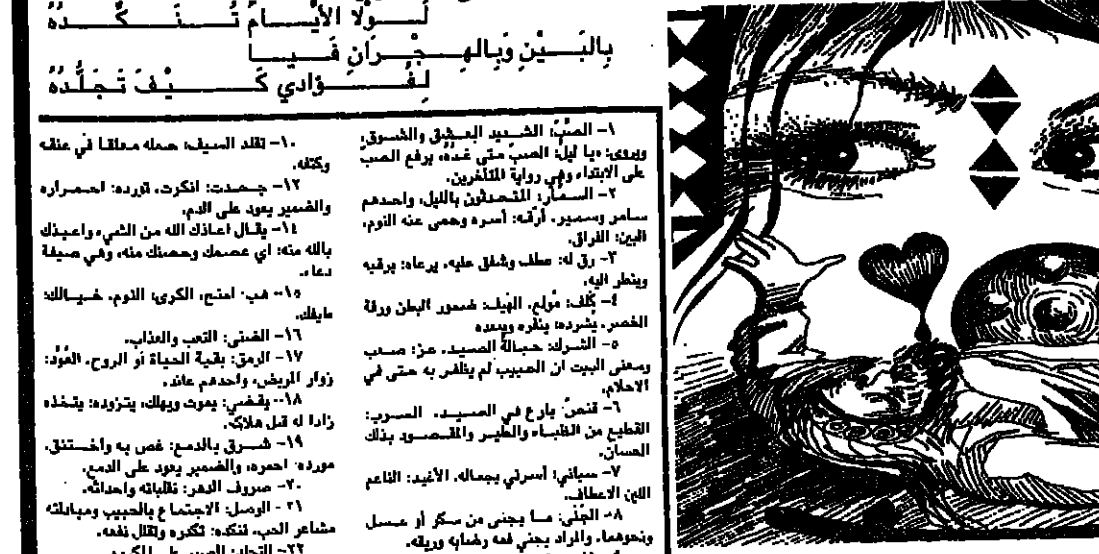 لَـــــوْلا الأَيَّـــــامُ تُـــنَـــكِّـــدُهُ
بِالبَـــيْنِ وَبِالهِـــجْـــرَانِ فَـــيـــا
لِـفُـــؤادي كَـــيْـــفَ تَـجَـلُّـدُهُ
١- الصّبّ: الشـديد العـشق والشـوق.
ويروى: «يا ليل: الصب متى غده» برفع الصب
على الابتداء وهي رواية المتأخرين.
٢- السـمّار: المتـحدثون بالليل، واحدهم
سـامر وسـمير. أرّقـه: أسـره وحمى عنه النوم.
البين: الفراق.
٣- رق له: عطف وشفق عليه. يرعاه: يرقبه
وينظر اليه.
٤- كَلِف: مُولع. الهيف: ضمور البطن ورقة
الخصر. يشرده: ينفره ويبعده
٥- الشـرك: حبـالة الصـيد. عز: صـعب
ومعنى البيت ان الحبيب لم يظفر به حتى في
الاحلام.
٦- قنصٌ: بارع في الصـيـد. السـرب:
القطيع من الظبـاء والطيـر والمقـصـود بذلك
الحسان.
٧- سباني: أسرني بجماله. الأغيد: الناعم
اللين الاعطاف.
٨- الجَنْى: مـا يجنى من سكر أو عـسل
ونحوهما. والمراد يجني فمه رضابه وريقه.
١٠- تقلد السيف: حمله معلقا في عنقه
وكتفه.
١٢- جـحدت: انكرت. تورده: احـمـراره
والضمير يعود على الدم.
١٤- يقـال اعـاذك الله من الشيء واعـيـذك
بالله منه: اي عصمك وحصنك منه، وهي صيغة
دعاء.
١٥- هب: امنح. الكرى: النوم. خـيـالك:
طيفك.
١٦- الضنى: التعب والعذاب.
١٧- الرمق: بقية الحياة أو الروح. العُوّد:
زوار المريض، واحدهم عائد.
١٨- يقضي: يموت ويهلك. يتزوده: يتخذه
زادا له قبل هلاكه.
١٩- شـرق بالدمـع: غص به وأخـتنق.
مورده: احمره، والضمير يعود على الدمع.
٢٠- صروف الدهر: تقلباته واحداثه.
٢١- الوصل: الاجتماع بالحبيب ومبادلته
مشاعر الحب. تنكده: تكدره وتقلل نفعه.